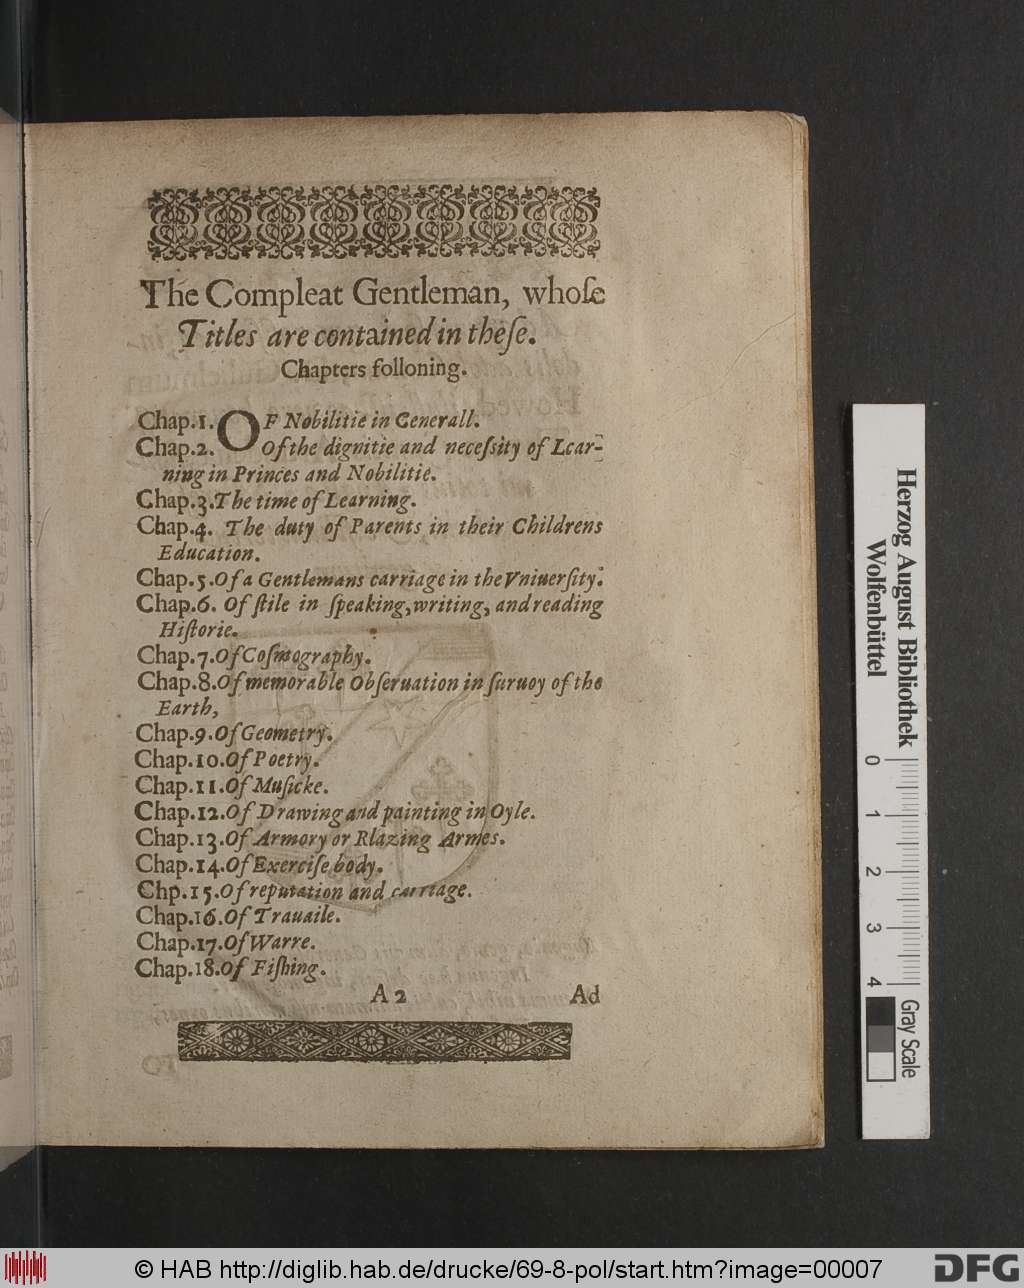 The Compleat Gentleman, whoſe
Titles are contained in theſe.
Chapters folloning.
Chap.1. OF Nobilitie in Generall.
Chap.2. Of the dignitie and neceſsity of Lear-
ning in Princes and Nobilitie.
Chap.3. The time of Learning.
Chap.4. The duty of Parents in their Childrens
Education.
Chap.5. Of a Gentlemans carriage in the Vniuerſity.
Chap.6. Of ſtile in ſpeaking, writing, and reading
Hiſtorie.
Chap.7. Of Coſmography.
Chap.8. Of memorable Obſeruation in ſuruoy of the
Earth,
Chap.9. Of Geometry.
Chap.10. Of Poetry.
Chap.11. Of Muſicke.
Chap.12. Of Drawing and painting in Oyle.
Chap.13. Of Armory or Rlazing Armes.
Chap.14. Of Exerciſe body.
Chp.15. Of reputation and carriage.
Chap.16. Of Trauaile.
Chap.17. Of Warre.
Chap.18. Of Fiſhing.
A 2 Ad
Herzog August Bibliothek
Wolfenbüttel
0 1 2 3 4
Gray Scale
© HAB http://diglib.hab.de/drucke/69-8-pol/start.htm?image=00007
DFG